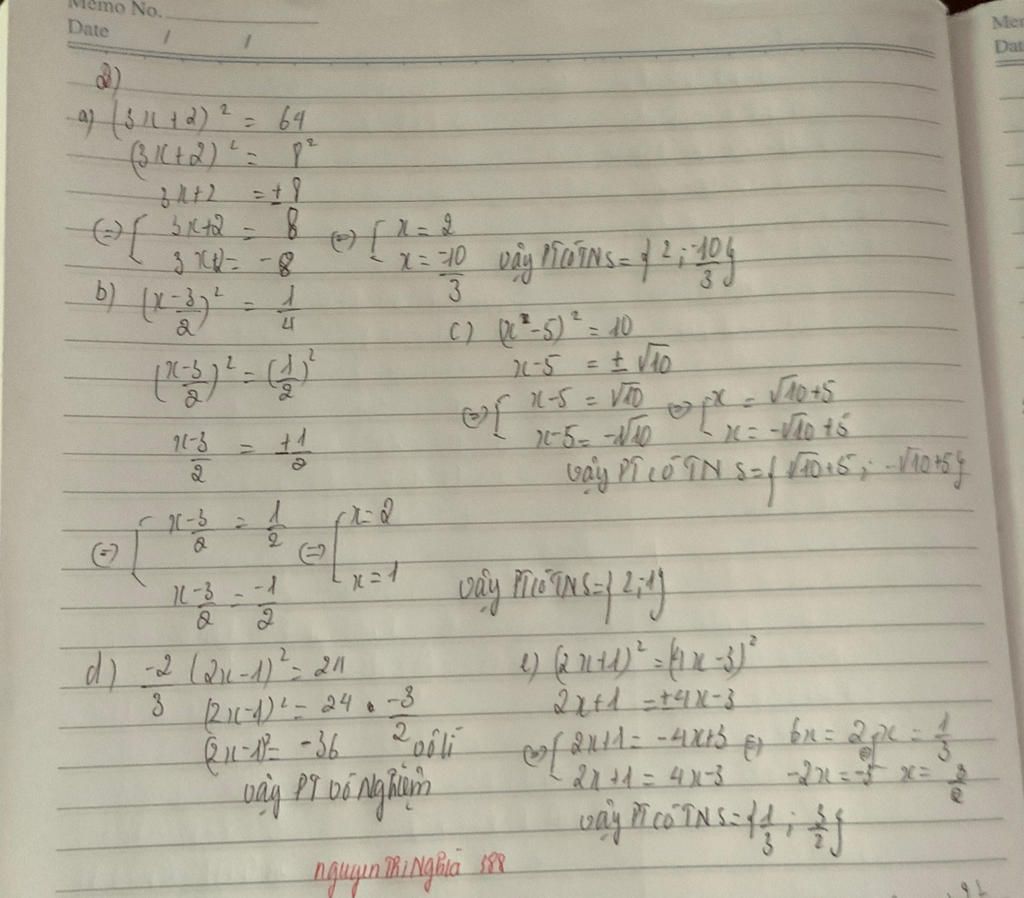 Memo No.
Date / /
2)
a) (3x+2)² = 64
(3x+2)² = 8²
3x+2 = ±8
(=) [ 3x+2 = 8 (=) [ x = 2
3x+2 = -8 x = -10/3 vậy PT có TN S = { 2 ; -10/3 }
b) (x-3/2)² = 1/4
(x-3/2)² = (1/2)²
x-3/2 = ±1/2
(=) [ x-3/2 = 1/2 (=) [ x = 2
x-3/2 = -1/2 x = 1 vậy PT có TN S = { 2 ; 1 }
c) (x-5)² = 10
x-5 = ±√10
(=) [ x-5 = √10 (=) [ x = √10+5
x-5 = -√10 x = -√10+5
vậy PT có TN S = { √10+5 ; -√10+5 }
d) -2/3 (2x-1)² = 24
(2x-1)² = 24 . -3/2
(2x-1)² = -36 vô lí
vậy PT vô Nghiệm
e) (2x+1)² = (4x-3)²
2x+1 = ±4x-3
(=) [ 2x+1 = -4x+3 (=) 6x = 2 (=) x = 1/3
2x+1 = 4x-3 -2x = -3 x = 3/2
vậy PT có TN S = { 1/3 ; 3/2 }
nguyen Thi Nghia 388
Dat